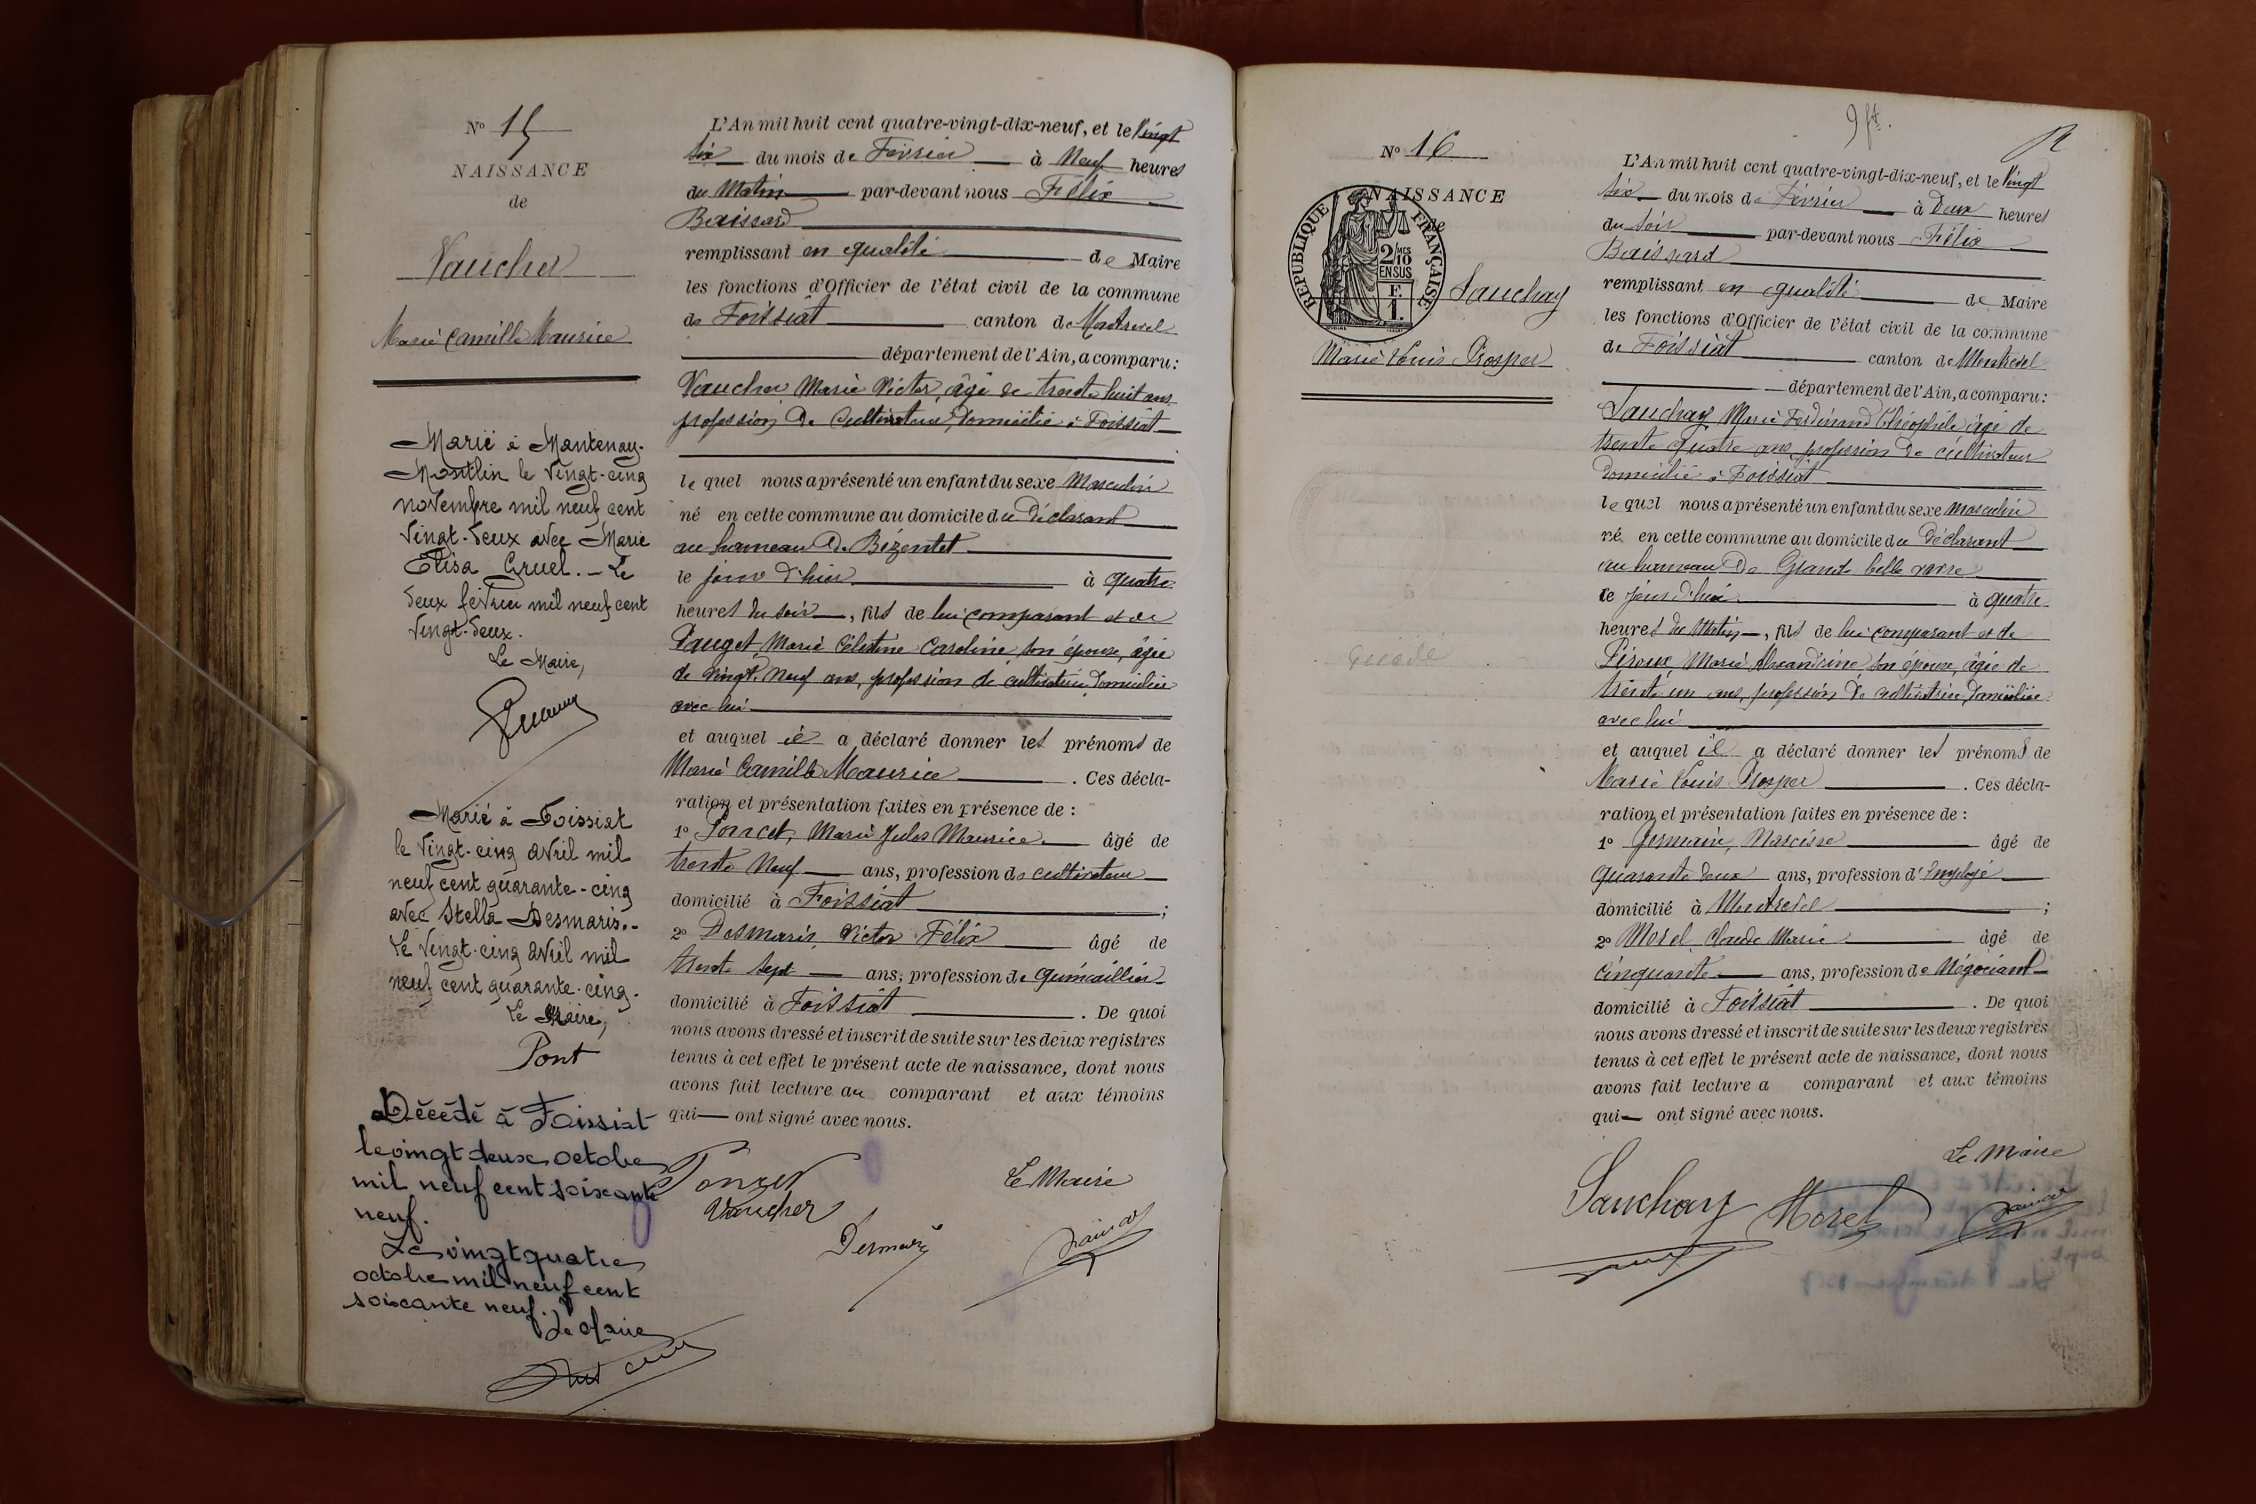 N° 15
NAISSANCE
de
Vaucher
Marie Camille Maurice
Marié à Mantenay-
Montlin le vingt-cinq
novembre mil neuf cent
vingt-deux avec Marie
Elisa Gruel. - Le
deux février mil neuf cent
vingt-deux.
Le Maire,
Marié à Foissiat
le vingt-cinq avril mil
neuf cent quarante-cinq
avec Stella Desmaris.-
Le vingt-cinq avril mil
neuf cent quarante-cinq.
Le Maire,
Pont
Décédé à Foissiat
le vingt deux octobre
mil neuf cent soixante
neuf.
Le vingt quatre
octobre mil neuf cent
soixante neuf.
Le Maire
L'An mil huit cent quatre-vingt-dix-neuf, et le Vingt
six du mois de Février à Neuf heures
du Matin par-devant nous Félix
Baissard
remplissant en qualité de Maire
les fonctions d'Officier de l'état civil de la commune
de Foissiat canton de Montrevel
département de l'Ain, a comparu:
Vaucher Marie Victor, âgé de trente huit ans
profession de Cultivateur, domicilié à Foissiat
le quel nous a présenté un enfant du sexe Masculin
né en cette commune au domicile du Déclarant
au hameau de Bézentet
le jour d'hier à quatre
heures du soir, fils de lui comparant et de
Pauget, Marie Célestine Caroline, son épouse, âgée
de vingt-neuf ans, profession de cultivatrice, domiciliée
avec lui
et auquel il a déclaré donner les prénoms de
Marie Camille Maurice. Ces décla-
ration et présentation faites en présence de :
1° Poncet, Marie Jules Maurice âgé de
trente Neuf ans, profession de cultivateur
domicilié à Foissiat ;
2° Desmaris, Victor Félix âgé de
trente sept ans, profession de quincaillier
domicilié à Foissiat. De quoi
nous avons dressé et inscrit de suite sur les deux registres
tenus à cet effet le présent acte de naissance, dont nous
avons fait lecture au comparant et aux témoins
qui ont signé avec nous.
Poncet
Vaucher
Desmaris
Le Maire
9 ft.
N° 16
NAISSANCE
de
REPUBLIQUE FRANÇAISE
2/10 MES
EN SUS
F.
1.
Sauchay
Marie Louis Prosper
L'An mil huit cent quatre-vingt-dix-neuf, et le Vingt
six du mois de Février à Deux heures
du soir par-devant nous Félix
Baissard
remplissant en qualité de Maire
les fonctions d'Officier de l'état civil de la commune
de Foissiat canton de Montrevel
département de l'Ain, a comparu:
Sauchay Marie Ferdinand Théophile âgé de
trente quatre ans, profession de cultivateur
domicilié à Foissiat
le quel nous a présenté un enfant du sexe Masculin
né en cette commune au domicile du Déclarant
au hameau de Grand
le jour d'hui à quatre
heures du Matin, fils de lui comparant et de
Piroux, Marie Alexandrine son épouse, âgée de
trente un ans, profession de cultivatrice, domiciliée
avec lui
et auquel il a déclaré donner les prénoms de
Marie Louis Prosper. Ces décla-
ration et présentation faites en présence de :
1° Germain, Narcisse âgé de
quarante deux ans, profession d'Employé
domicilié à Montrevel ;
2° Morel, Claude Marie âgé de
Cinquante ans, profession de Négociant
domicilié à Foissiat. De quoi
nous avons dressé et inscrit de suite sur les deux registres
tenus à cet effet le présent acte de naissance, dont nous
avons fait lecture a comparant et aux témoins
qui ont signé avec nous.
Le Maire
Sauchay
Morel